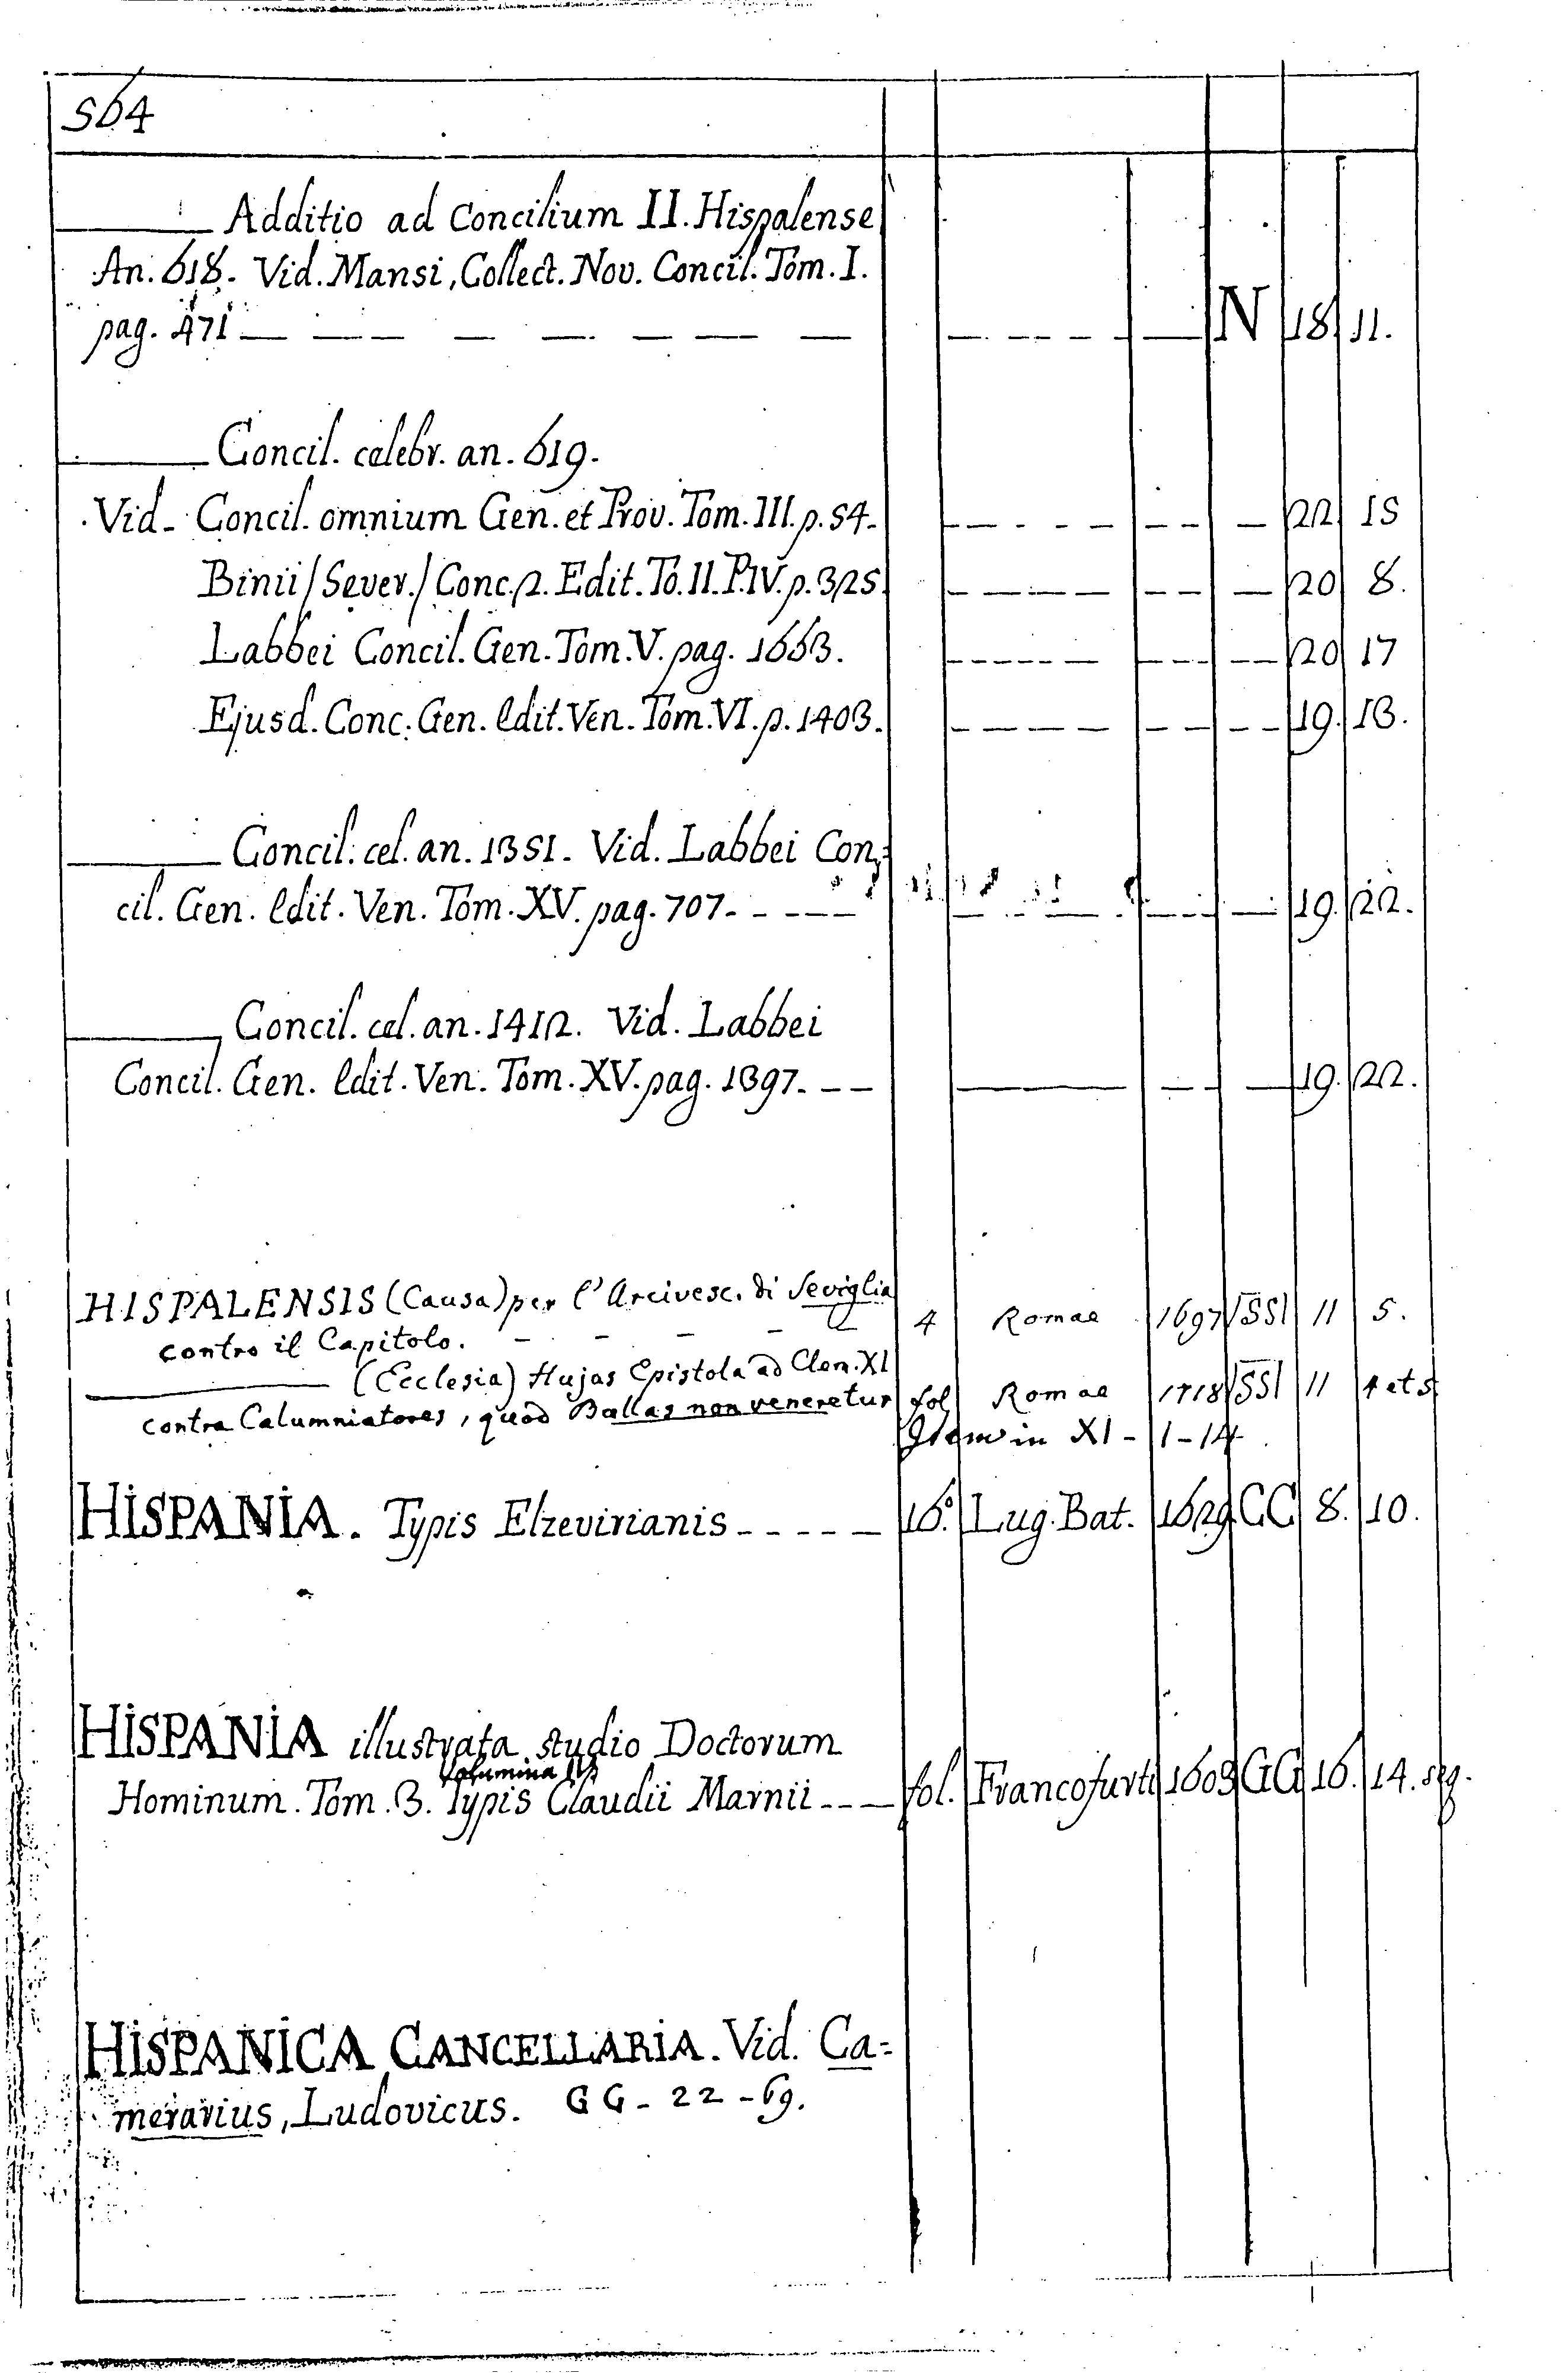 564
Additio ad Concilium II. Hispalense
An. 618. Vid. Mansi, Collect. Nov. Concil. Tom. I.
pag. 471 — — — — — — — — N 18 11.
Concil. celebr. an. 619.
Vid. Concil. omnium Gen. et Prov. Tom. III. p. 54. — — — — 22 15
Binii / Sever. / Conc. 2. Edit. To. II. P. IV. p. 325. — — — — 20 8.
Labbei Concil. Gen. Tom. V. pag. 1663. — — — — 20 17
Ejusd. Conc. Gen. Edit. Ven. Tom. VI. p. 1403. — — — — 19. 13.
Concil. cel. an. 1351. Vid. Labbei Con=
cil. Gen. Edit. Ven. Tom. XV. pag. 707. — — — — 19. 22.
Concil. cel. an. 1412. Vid. Labbei
Concil. Gen. Edit. Ven. Tom. XV. pag. 1397. — — — — 19. 22.
HISPALENSIS (Causa) per l'Arcivesc. di Seviglia
contro il Capitolo. — — — — 4 Romae 1697 SS 11 5.
(Ecclesia) Hujas Epistola ad Clem. XI
contra Calumniatores, quod Bullas non veneretur fol Romae 1718 SS 11 4 et 5
Item in XI - 1 - 14.
HISPANIA. Typis Elzevirianis — — — — 16.° Lug. Bat. 1629 CC 8. 10.
HISPANIA illustrata studio Doctorum
Volumina
Hominum. Tom. 3. Typis Claudii Marnii — — — fol. Francofurti 1603 GG 16. 14. seq.
HISPANICA CANCELLARIA. Vid. Ca=
merarius, Ludovicus. GG - 22 - 69.